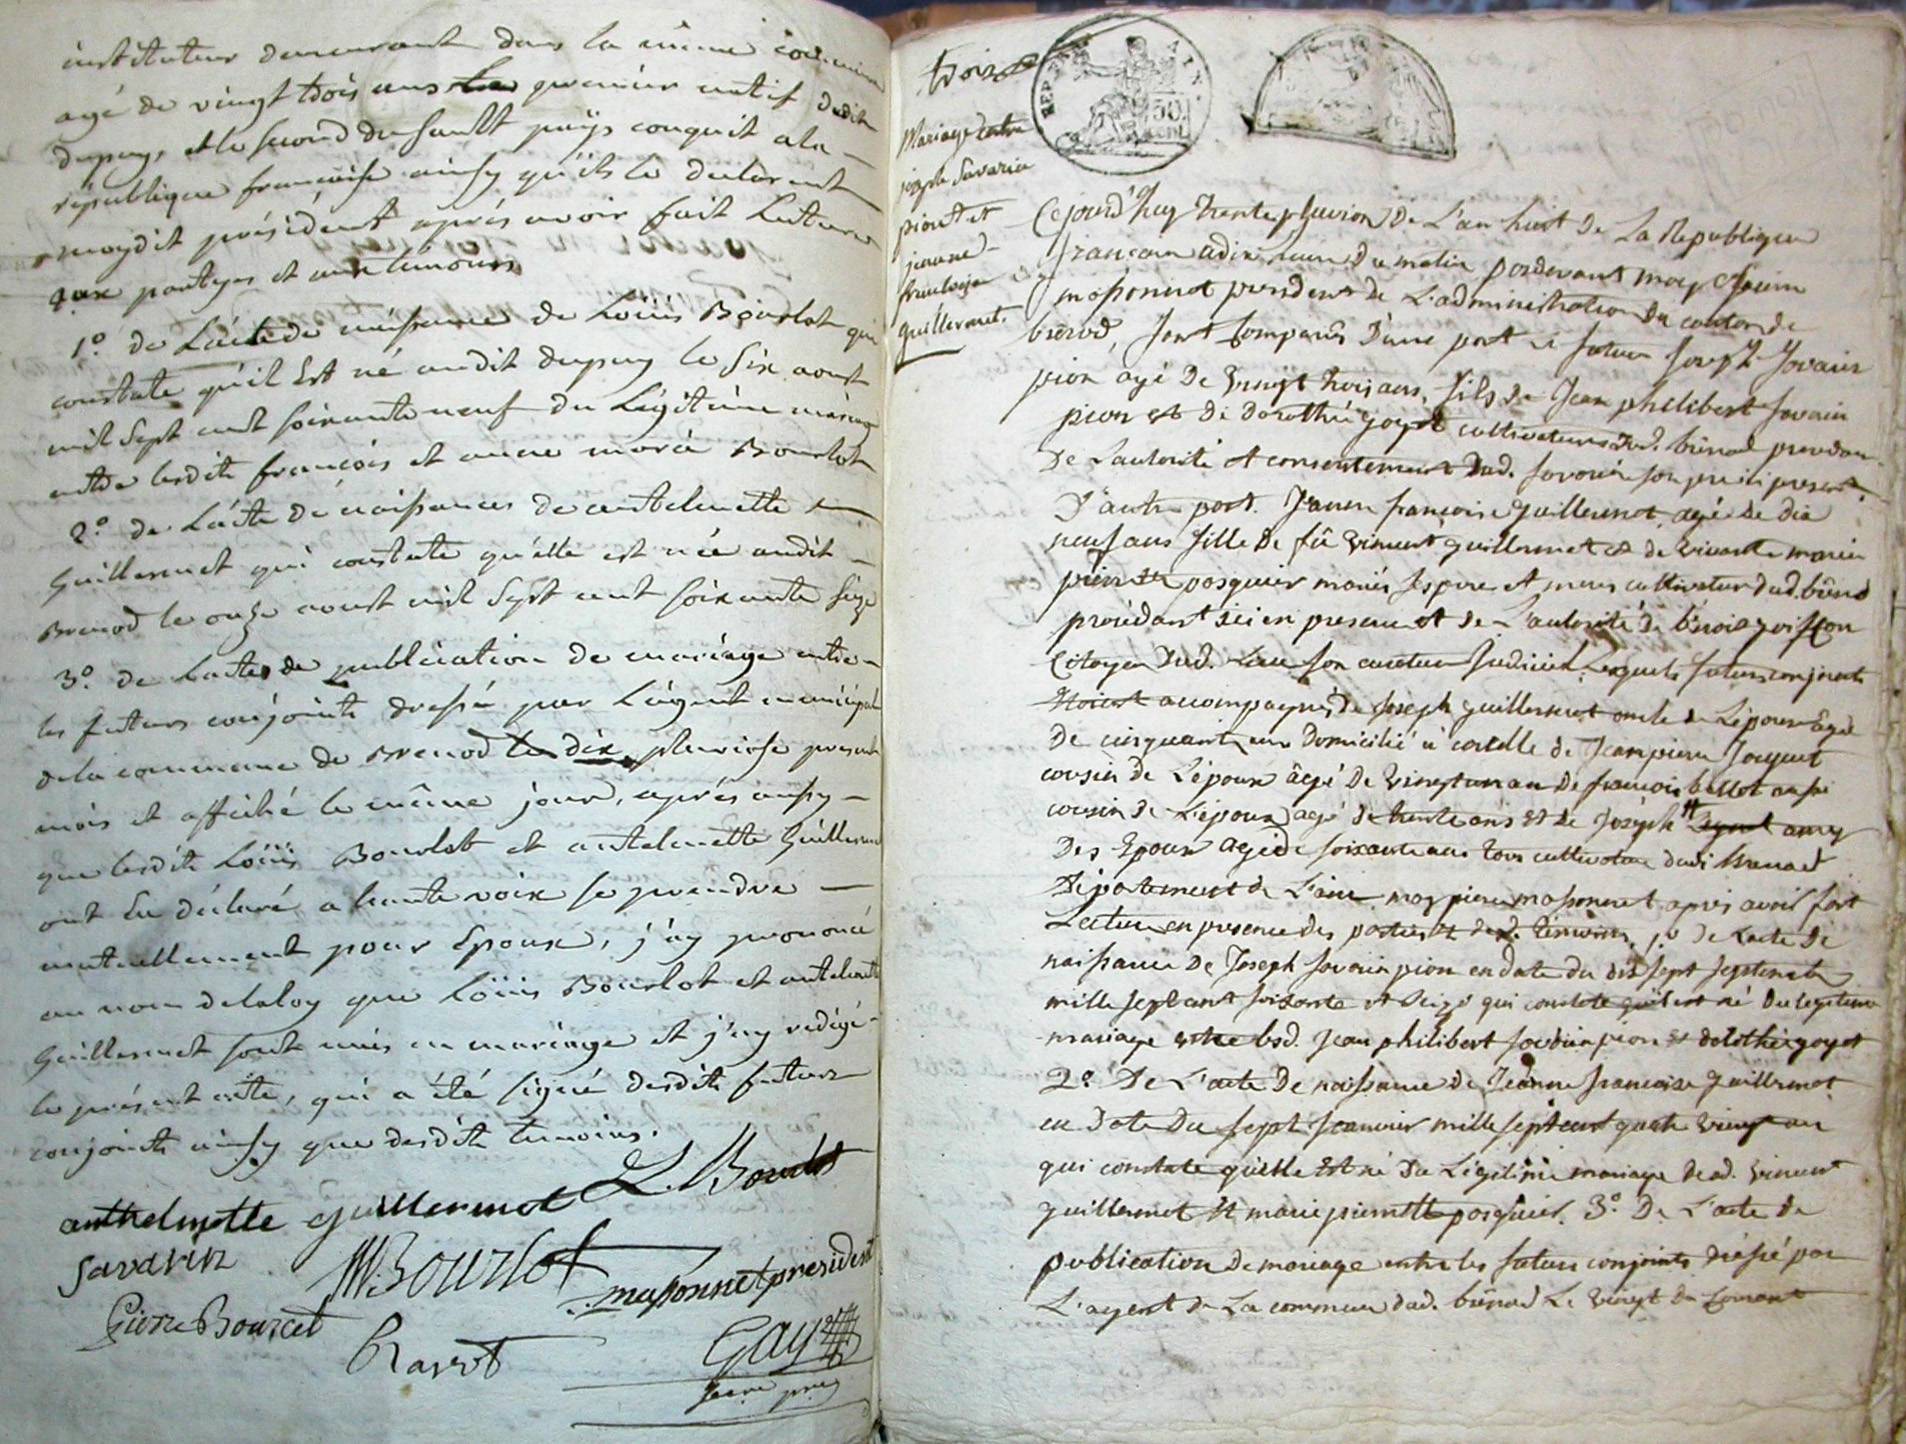 instituteur demeurant dans la même commune
agé de vingt trois ans le premier natif dudit
dupuy, et le second du sault païs conquit a la
république francoise ainsy qu'ils le declarent
moydit président après avoir fait lecture
aux partyes et aux temoins
1º. de Lacte de naissance de Loüis Bourlot qui
constate qu'il Est né audit dupuy le six aoust
mil sept cent soixante neuf du Légitime mariage
entre lesdits francois et anne Bourlot
2º. de Lacte de naissances de antelmette
Guillermet qui constate qu'elle est née audit
Brenod le onze aoust mil sept cent soixante seize
3º. de Lacte de publication de mariage entre
les futurs conjoints dressé par Lagent municipal
dela commune de Brenod le dix pluviose present
mois et affiché le même jour, après ainsy
que lesdits Loüis Bourlot et antelmette Guillermet
ont Eu déclaré a haute voix se prendre
mutuellement pour Epoux, j'ay prononcé
au nom delaloy que Loüis Bourlot et antelmette
Guillermet sont unis en mariage et j'ay redigé
le présent acte, qui a été signé desdits futurs
conjoints ainsy que desdits temoins.
anthelmette guillermot L. Bourlot
savarin M. Bourlot massonnet president
Pierre Bourcet Gay
Ravot
trois
REP. 50 CENT.
Mariage Entre
joseph Savarin
piont et
jeanne
francoise
guillermet.
Cejourd'huy trente pluviose De L'an huit De La Republique
francaise a dix heure du matin pardevant moy pierre
massonnet president de L'administration du canton de
brenod, sont comparus D'une part le futur Joseph Savarin
pion agé De vingt trois ans, fils de Jean philibert Savarin
pion et de dorothé goyet cultivateurs dud. brenod procedant
De Lautorité et consentement Dud. Savarin son pere ici present,
D'autre part. Jeanne françoise guillermot agée de dix
neuf ans fille De fû vincent guillermet et de vivante marie
pierrette pasquier mariés ses pere et mere cultivateur dud. brenod
procédant ici en presence et de L'autorité de benoit poisson
Citoyen Dud. Lieu son curateur Judiciel, Lesquels futurs conjoints
étoient accompagnés de Joseph guillermet oncle de Lépouse âgé
De cinquante ans Domicilié a corcelle de Jean pierre Jacquet
cousin de Lépoux âgé De vingt un an De francois ballet aussi
cousin de Lépoux agé de trente ans et de Joseph amy
Des Epoux agé de soixante ans tous cultivateur dudi Brenod
Département de L'ain moy pierre massonnet apres avoir fait
Lecture en presence des parties et desd. temoins, 1º. de Lacte de
naissance De Joseph Savarin pion en date du dix sept septembre
mille sept cent soixante et seize qui constate quil est né Du legitime
mariage entre lesd. Jean philibert Savarin pion et dorothé goyet
2º. De L'acte De naissance de Jeanne francoise guillermet
en Date Du sept Janvier mille sept cent quatre vingt un
qui constate qu'elle Est né Du Légitime mariage de ad. vincent
guillermet et marie pierrette pasquier. 3º. De L'acte de
publication de mariage entre les futurs conjoints dréssé par
L'agent de La commune dud. brénod Le vingt du courant